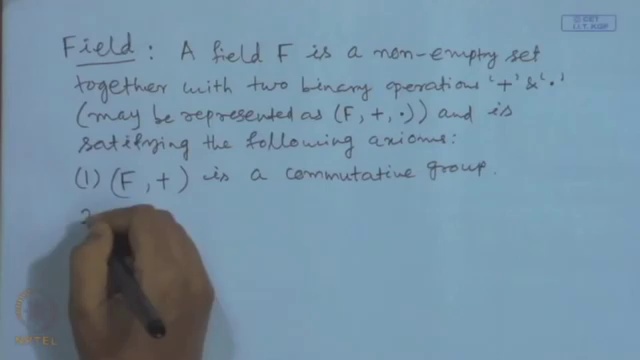 © CET
I.I.T. KGP
Field : A field F is a non-empty set
together with two binary operations '+' & '.'
(may be represented as (F, +, .)) and is
satisfying the following axioms:
(1) (F, +) is a commutative group.
2
NPTEL